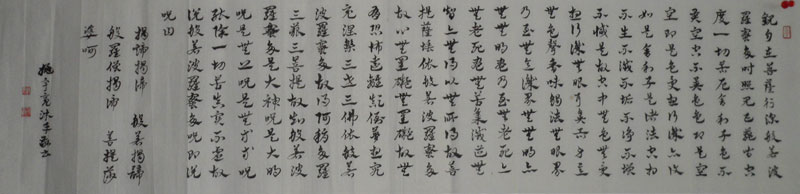 觀自在菩薩行深般若波
羅蜜多時照見五蘊皆空
度一切苦厄舍利子色不
異空空不異色色即是
空空即是色受想行識亦復
如是舍利子是諸法空相
不生不滅不垢不淨不增
不減是故空中無色無受
想行識無眼耳鼻舌身意
無色聲香味觸法無眼界
乃至無意識界無無明亦
無無明盡乃至無老死亦
無老死盡無苦集滅道無
智亦無得以無所得故菩
提薩埵依般若波羅蜜多
故心無罣礙無罣礙故無
有恐怖遠離顛倒夢想究
竟涅槃三世諸佛依般若
波羅蜜多故得阿耨多羅
三藐三菩提故知般若波
羅蜜多是大神咒是大明
咒是無上咒是無等等咒
能除一切苦真實不虛故
說般若波羅蜜多咒即說
咒曰
揭諦揭諦 般羅揭諦
般羅僧揭諦 菩提薩
婆訶